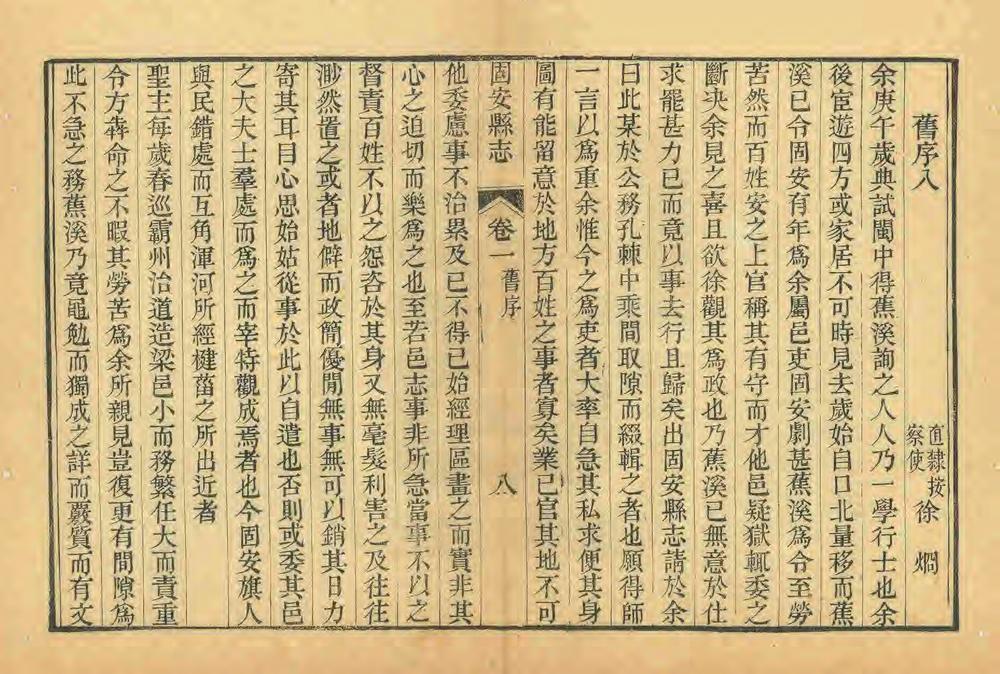 舊序八
直隸按察使徐炯
余庚午歲典試閩中得蕉溪詢之人人乃一學行士也余
後宦遊四方或家居不可時見去歲始自口北量移而蕉
溪已令固安有年爲余屬邑吏固安劇甚蕉溪爲令至勞
苦然而百姓安之上官稱其有守而才他邑疑獄輒委之
斷决余見之喜且欲徐觀其爲政也乃蕉溪已無意於仕
求罷甚力已而竟以事去行且歸矣出固安縣志請於余
曰此某於公務孔棘中乘間取隙而綴輯之者也願得師
一言以爲重余惟今之爲吏者大率自急其私求便其身
圖有能留意於地方百姓之事者寡矣業已官其地不可
固安縣志 卷一 舊序 八
他委慮事不治累及已不得已始經理區畫之而實非其
心之迫切而樂爲之也至若邑志事非所急當事不以之
督責百姓不以之怨咨於其身又無毫髮利害之及往往
渺然置之或者地僻而政簡優閒無事無可以銷其日力
寄其耳目心思始姑從事於此以自遣也否則或委其邑
之大夫士羣處而爲之而宰特觀成焉者也今固安旗人
與民錯處而互角渾河所經楗菑之所出近者
聖主每歲春巡霸州治道造梁邑小而務繁任大而責重
令方犇命之不暇其勞苦爲余所親見豈復更有間隙爲
此不急之務蕉溪乃竟黽勉而獨成之詳而覈質而有文